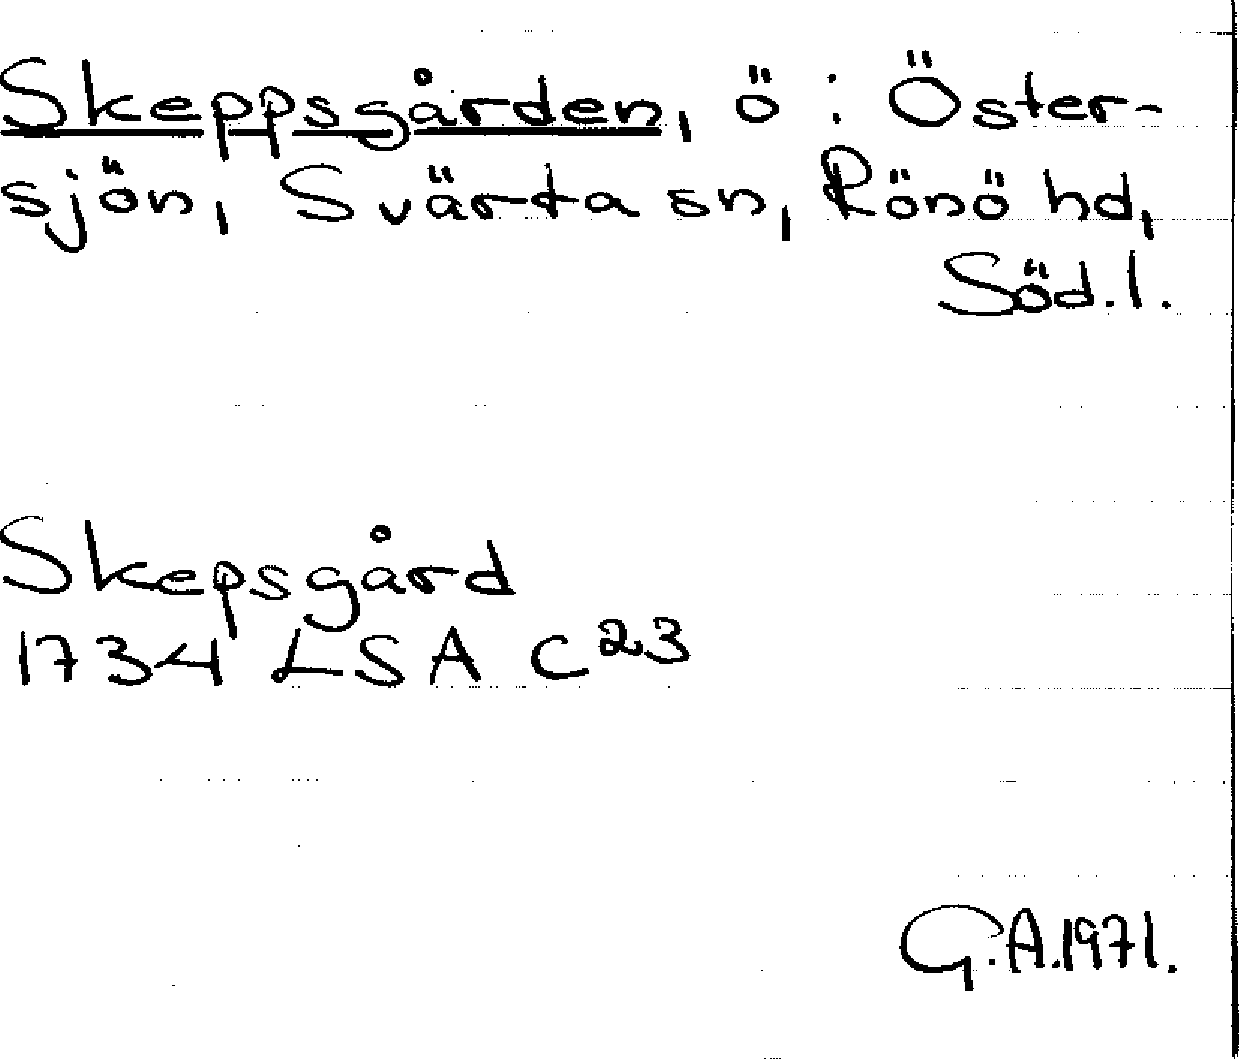 Skeppsgården, ö i Öster-
sjön, Svärta sn, Rönö hd,
Söd.l.
Skepsgård
1734 LSA C23
G.A.1971.